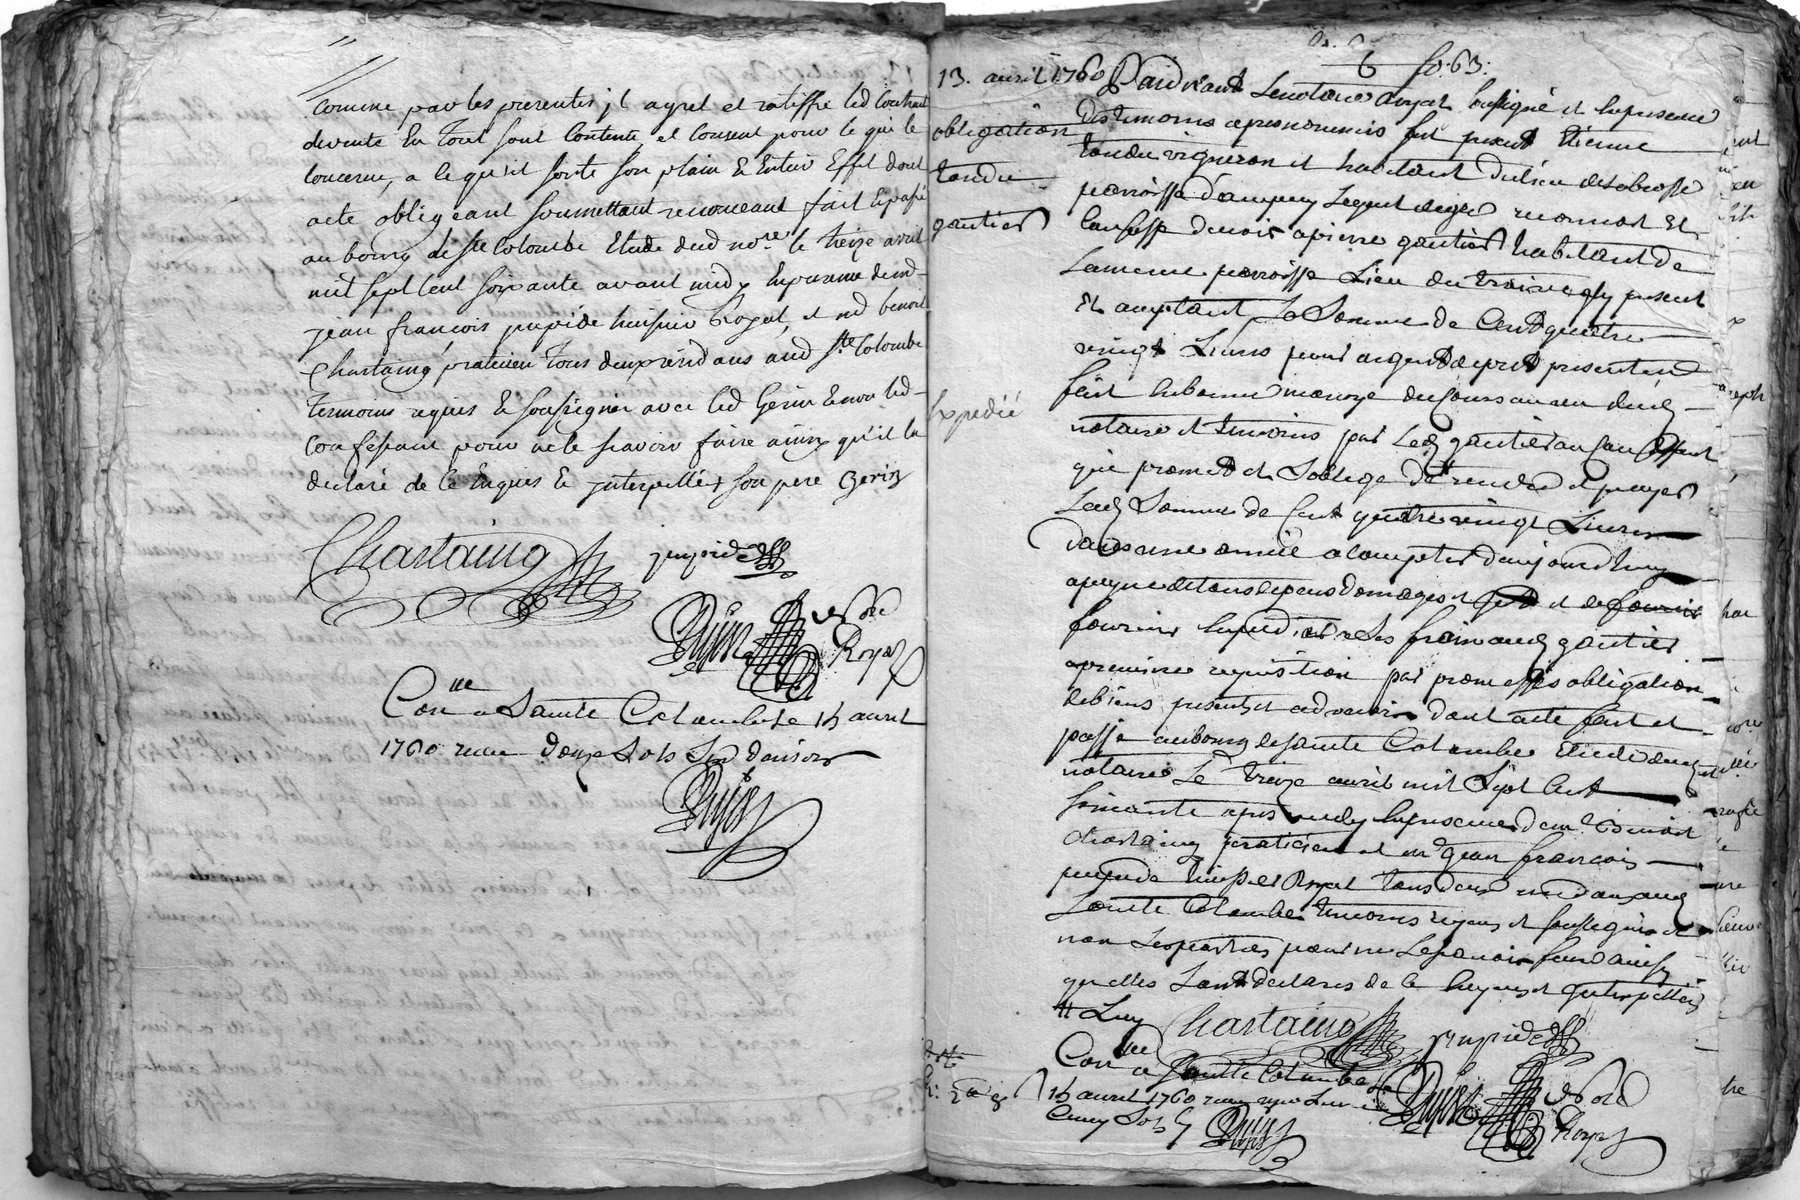 comme par les presentes jl agrée et ratiffie led Contrait
de vente En tout sont Contenu, et Consent pour ce qui le
Concerne, a ce qu'il sorte son plain & Entier Effet dont
acte obligeant soumettant renonceant fait & passé
au bourg de Ste Colombe Etude dud nore le treize avril
mil sept Cent soixante avant midy En presence de md
jean françois pupide huissier Royal, et md benoit
Chastaing praticien tous deux residans aud Ste Colombe
temoins requis & soussignés avec led Gerin & non led
Confessant pour ne le scavoir faire ainsy qu'il la
declaré de ce Enquis & jnterpellé son pere Gerin
Chastaing pupide
Royal
Conlle a Sainte Colombe le 15 avril
1760 recu Douze Sols Six deniers
13. avril 1760
6 fo. 63.
obligation
tondu
gautier
Expedié
Pardevant Le notaire Royal soussigné et En presence
des temoins apres nommés fut present Etienne
tondu vigneron et habitant du lieu de
parroisse d'ampuy Lequel de gré reconnoit Et
Confesse devoir a pierre gautier habitant de
La meme parroisse Lieu de jcy present
Et acceptant La Somme de Cent quatre
vingt Livres pour argent de pret presentement
fait En bonne monoye de Cours au veu dud
notaire et temoins par Led gautier au Confessant
qui promet et S'oblige de rendre et payer
Lad Somme de Cent quatre vingt Livres
dans une année a Compter d'aujourd'huy
a peyne de tous depens domages et et de fournir
fournir Expedié a Ses frais aud gautier
a premiere requisition par promesses obligation
de biens presents et advenir dont acte fait et
passé au bourg de Sainte Colombe Etude dud
notaire Le treize avril mil Sept Cent
Soixante apres midy En presence de mr Benoit
Chastaing praticien et mr jean françois
pupide huissier Royal tous deux residans aud
Sainte Colombe temoins requis et soussignés et
non Les parties pour ne Le scavoir faire ainsy
qu'elles L'ont declarés de ce Enquis et jnterpellés
Chastaing pupide
Conlle a Sainte Colombe le
15 avril 1760 recu
Cinq Sols
Royal